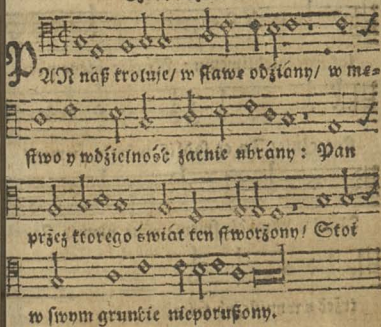 PAN naß kroluje/ w ſławe odźiany/ w mę-
ſtwo y wdźielność zacnie ubrány: Pan
przez ktorego świat ten ſtworzony/ Stoi
w ſwym grunćie nieporußony.